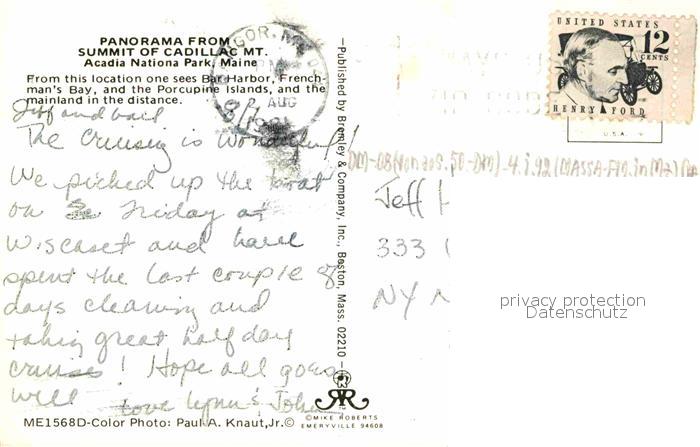 PANORAMA FROM
SUMMIT OF CADILLAC MT.
Acadia Nationa Park, Maine
From this location one sees Bar Harbor, French-
man's Bay, and the Porcupine Islands, and the
mainland in the distance.
Jeff and Gail
The Cruising is Wonderful!
We picked up the boat
on Friday at
Wiscaset and have
spent the last couple of
days cleaning and
taking great half day
cruises! Hope all goes
well Love Lynn & John
ME1568D-Color Photo: Paul A. Knaut, Jr.©
—Published by Bromley & Company, Inc., Boston, Mass. 02210—
©MIKE ROBERTS
EMERYVILLE 94608
AUG
UNITED STATES
12
CENTS
HENRY FORD
U.S.A.
Jeff
333
NY
privacy protection
Datenschutz